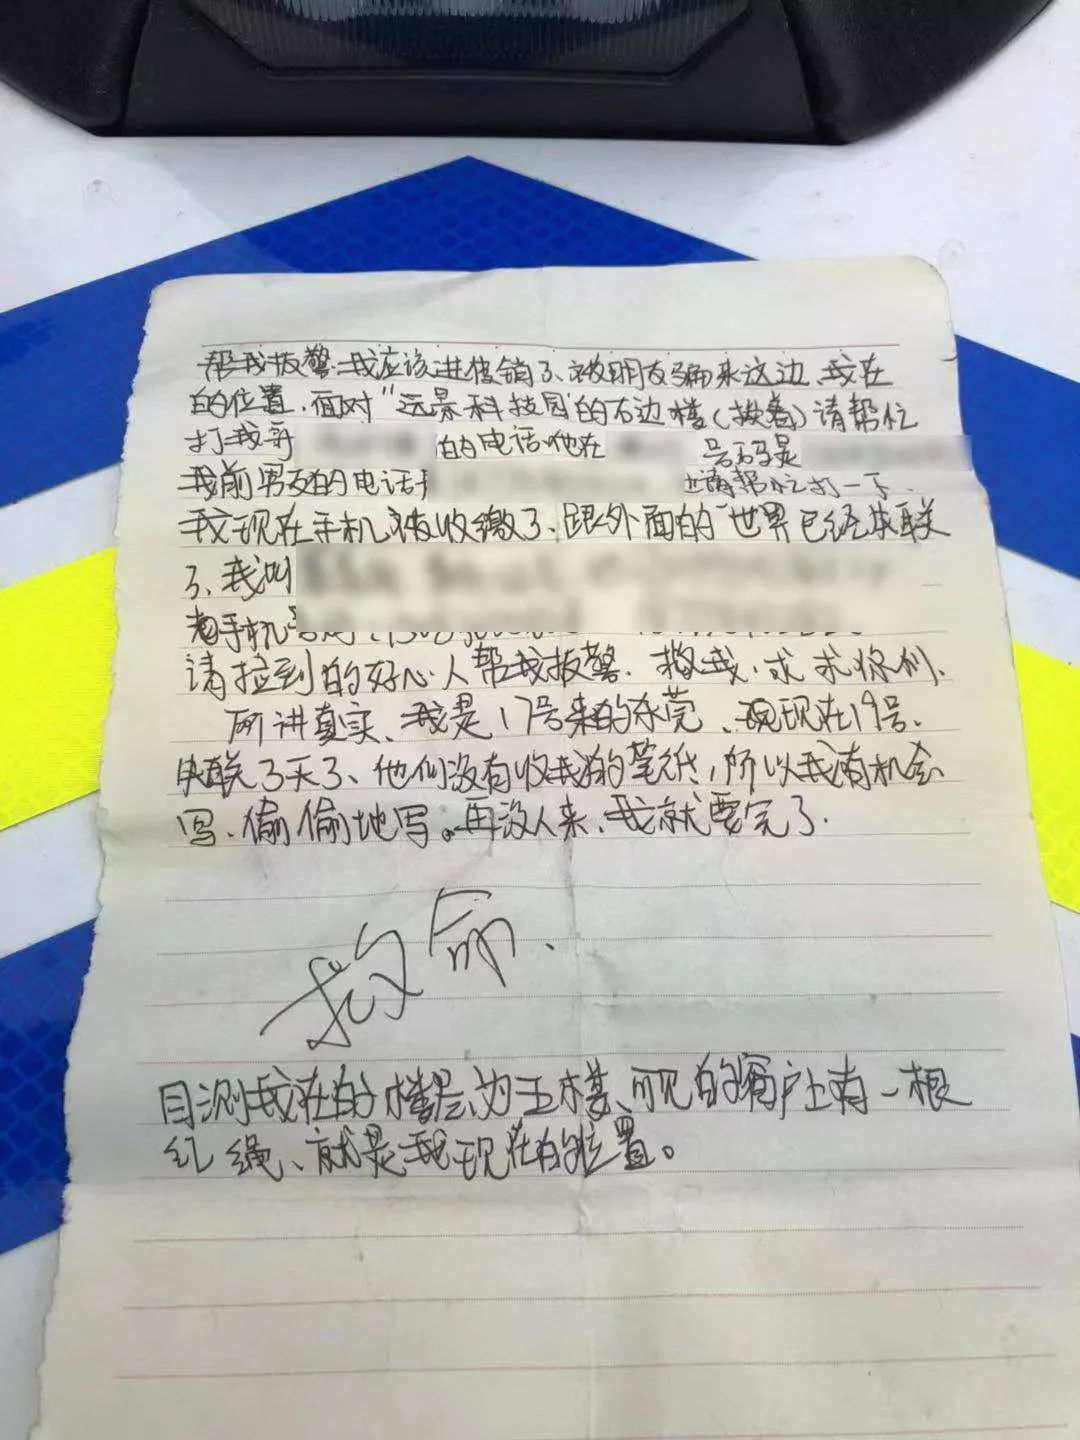 帮我报警.我应该进传销了、被朋友骗来这边、我在
的位置、面对“远景科技园”的右边楼(挨着)请帮忙
打我哥 的电话.他在 号码是
我前男友的电话 请帮忙打一下.
我现在手机被收缴了、跟外面的世界已经失联
了、我叫
老手机
请捡到的好心人帮我报警.救我.求求你们.
所讲真实、我是17号来的东莞、现在19号、
失联3天了、他们没有收我的笔纸,所以我有机会
写、偷偷地写。再没人来、我就要完了.
救命.
目测我在的楼层为五楼、可见的窗户上有一根
红绳、就是我现在的位置。